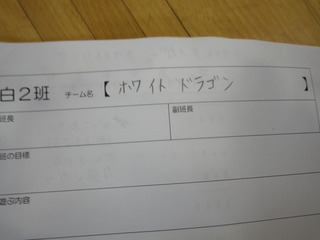 白2班 チーム名 【 ホワイト ドラゴン 】
班長 副班長
班の目標
遊ぶ内容